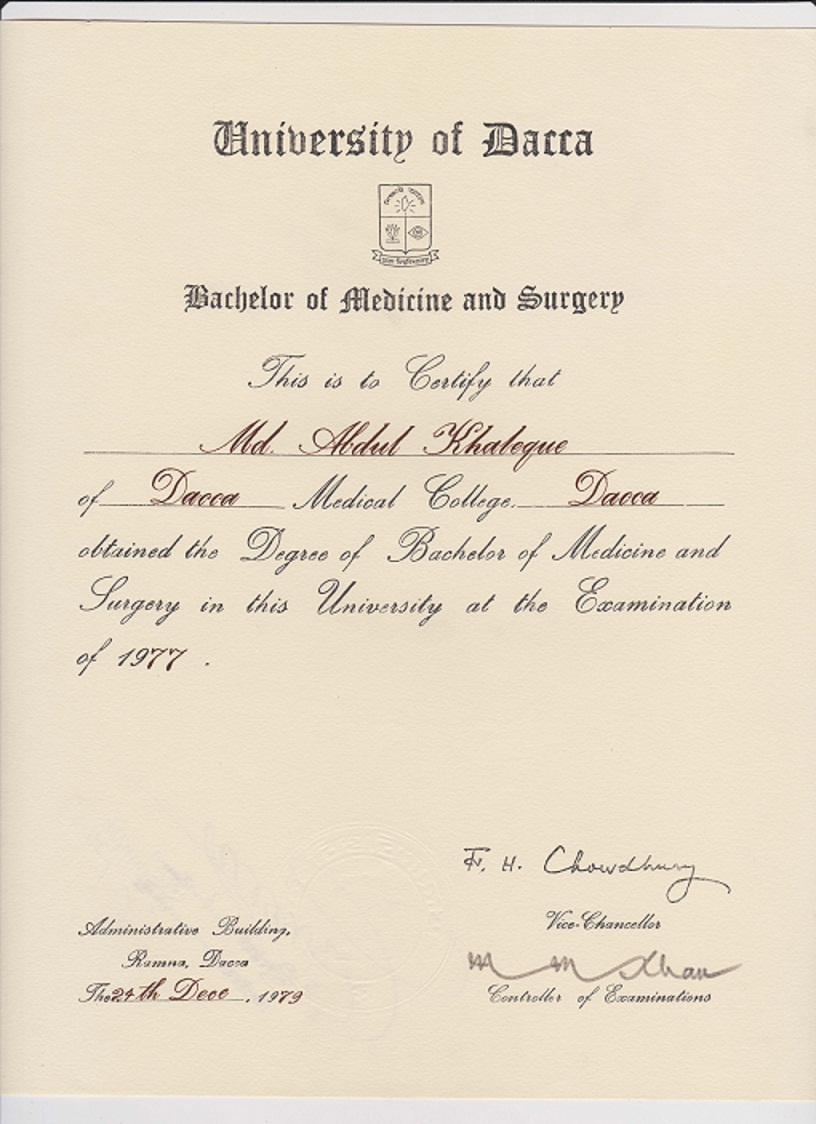 University of Dacca
Bachelor of Medicine and Surgery
This is to Certify that
Md. Abdul Khaleque
of Dacca Medical College. Dacca
obtained the Degree of Bachelor of Medicine and
Surgery in this University at the Examination
of 1977 .
F. H. Chowdhury
Administrative Building,
Vice-Chancellor
Ramna, Dacca
M M Khan
The 24th Dece , 1979
Controller of Examinations